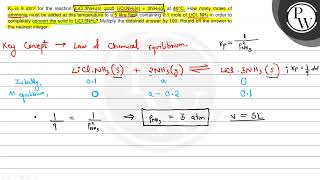 Kₚ is 9 atm² for the reaction LiCl·3NH₃(s) ⇌ LiCl·NH₃(s) + 2NH₃(g) at 40°C. How many moles of
ammonia must be added at this temperature to a 5 litre flask containing 0.1 mole of LiCl·NH₃ in order to
completely convert the solid to LiCl·3NH₃? Multiply the obtained answer by 100. Round off the answer to
the nearest integer.
PW
Key Concept → Law of Chemical Equilibrium.
Kp = 1/P²NH₃
LiCl·NH₃(s) + 2NH₃(g) ⇌ LiCl·3NH₃(s) ; Kp = 1/9
Initially, 0.1 a 0
At equilibrium, 0 a-0.2 0.1
• 1/9 = 1/P²NH₃ → PNH₃ = 3 atm V = 5L